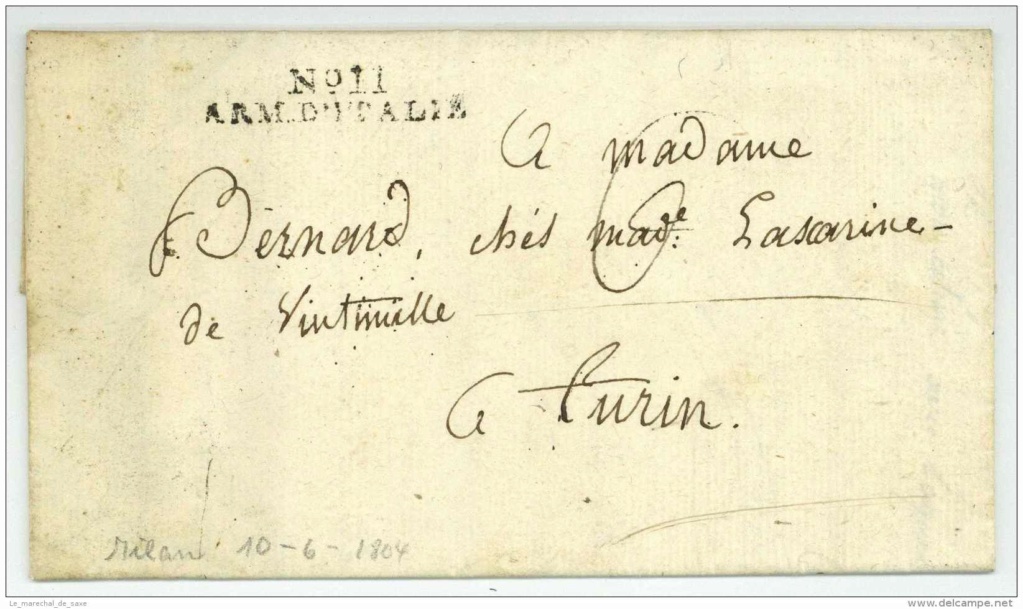 No 11
ARM. D'ITALIE
A Madame
Bernard, chés made. Lascarine-
de Vintimille
A turin.
Milan 10-6-1804
Le_marechal_de_saxe
delcampe.net